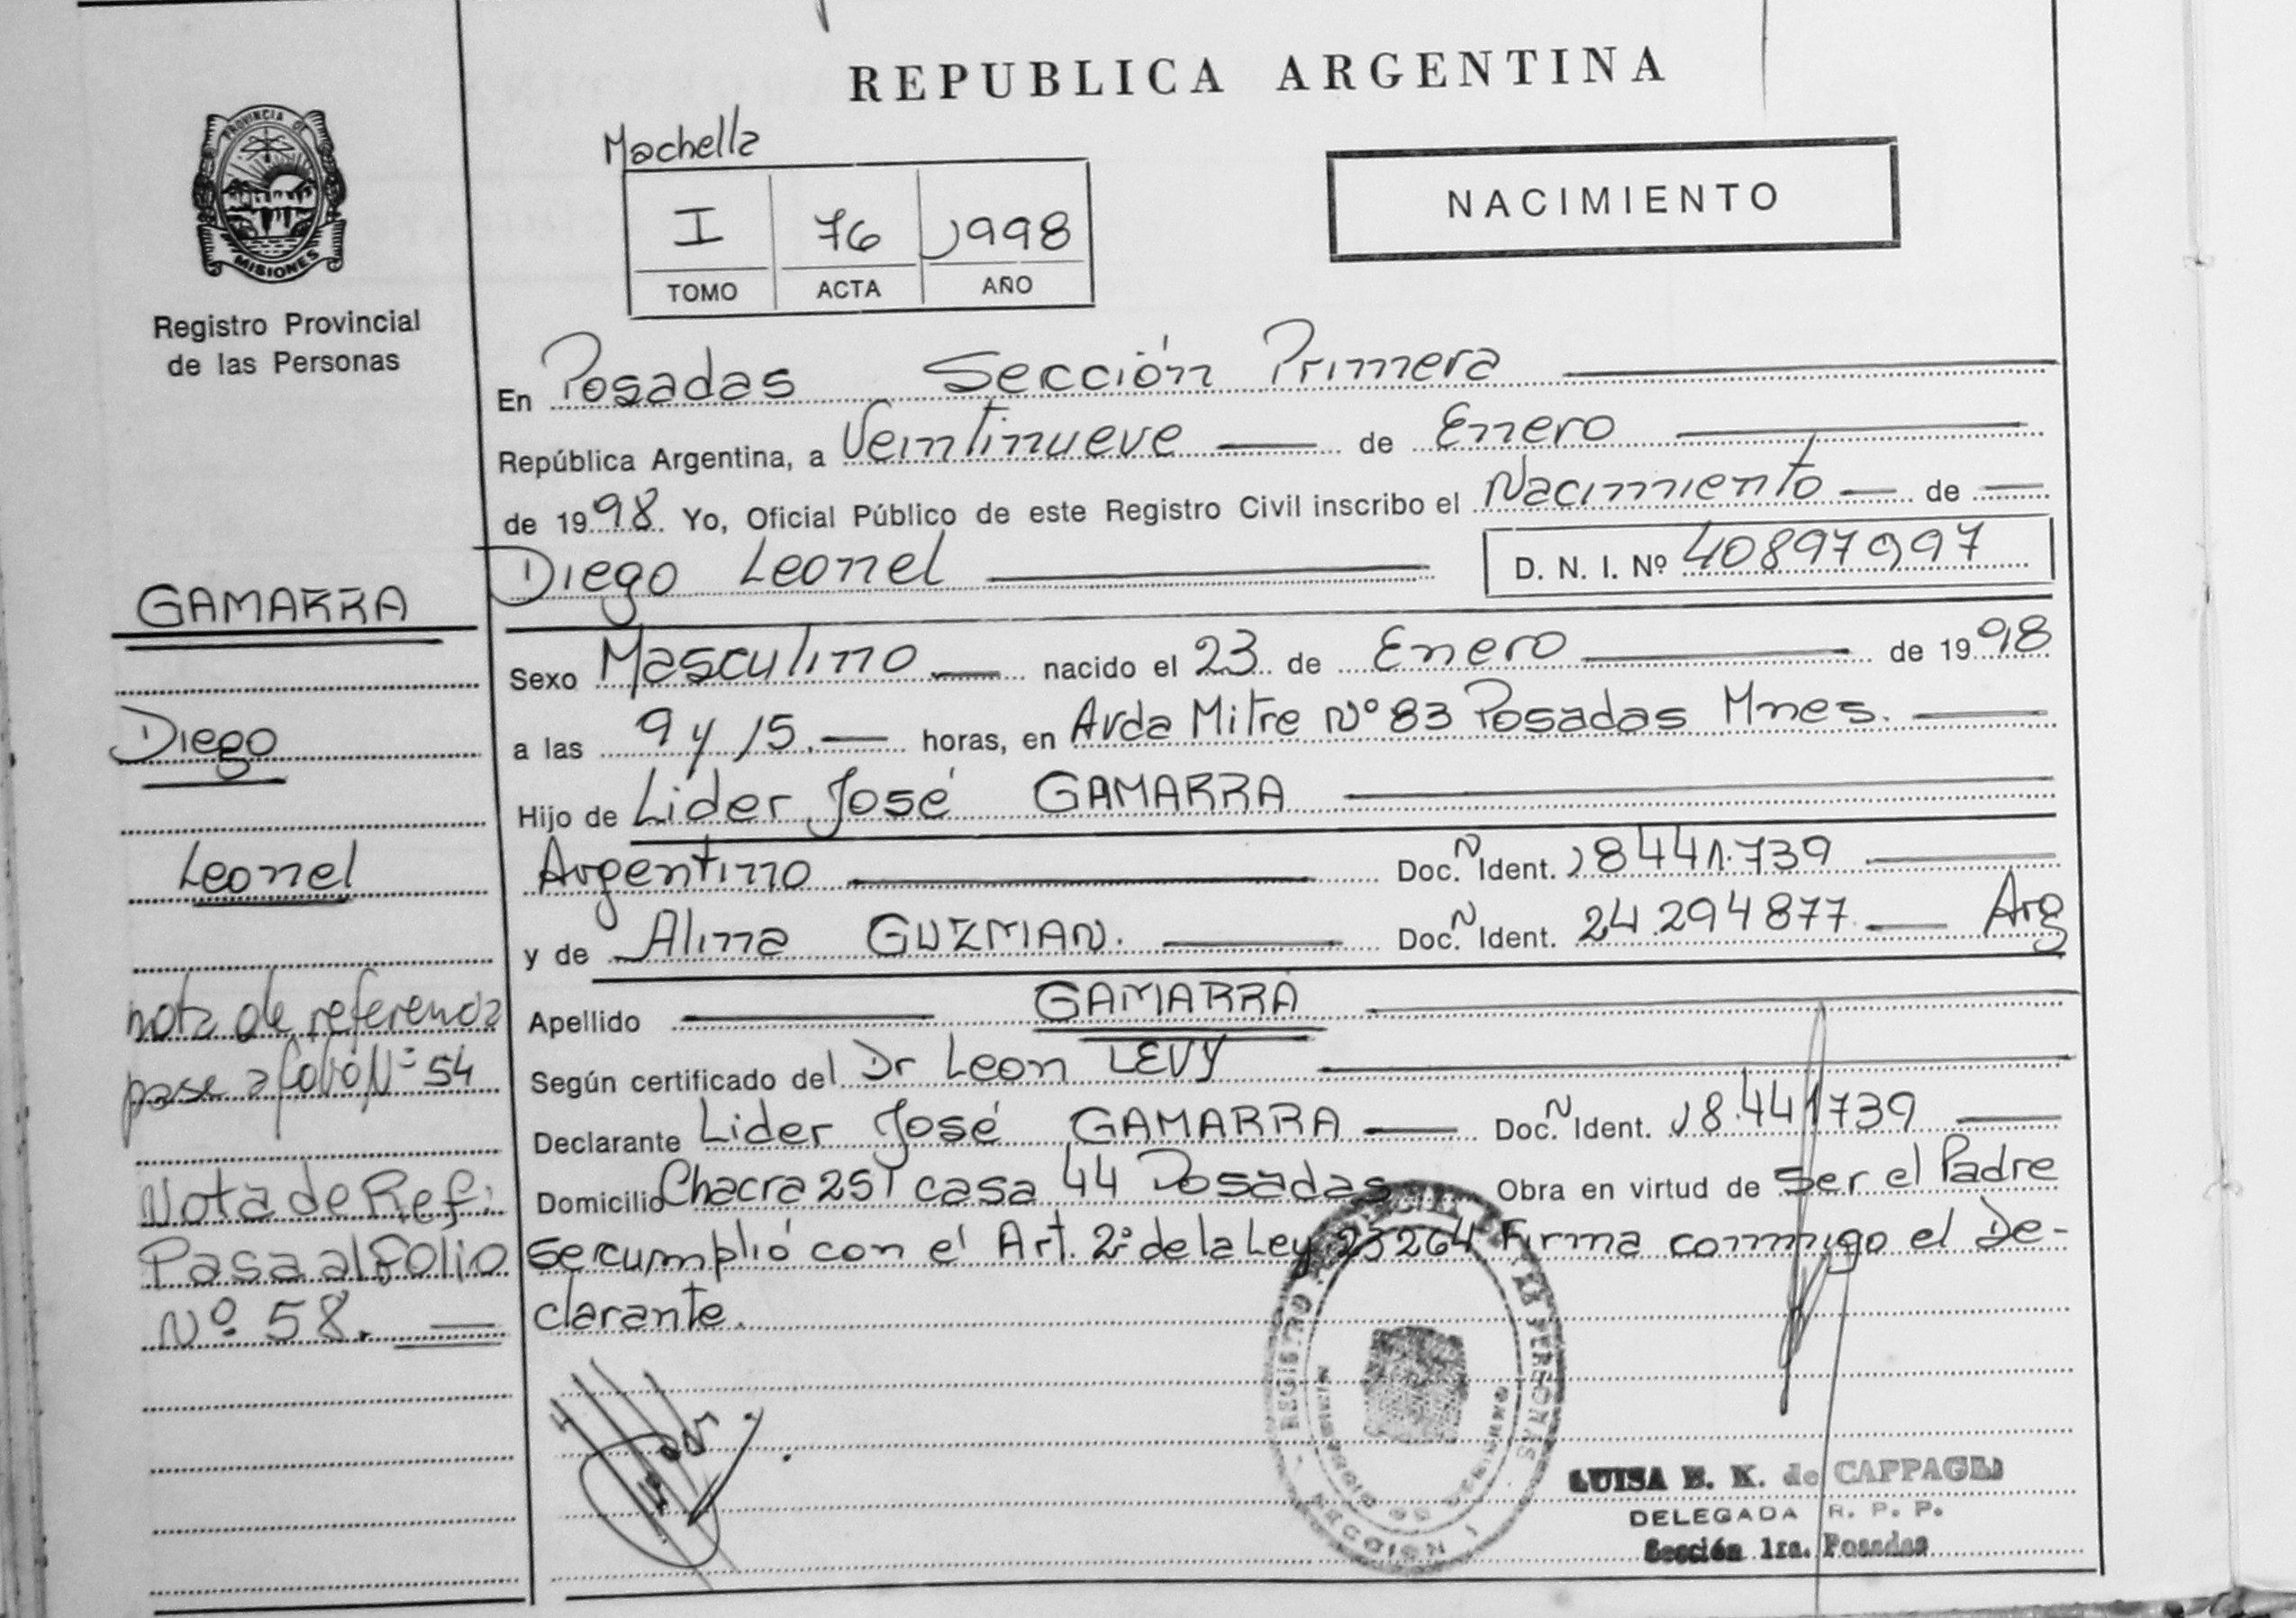 REPUBLICA ARGENTINA
PROVINCIA DE
MISIONES
Registro Provincial
de las Personas
Machella
I 76 1998
TOMO ACTA AÑO
NACIMIENTO
En Posadas Sección Primera
República Argentina, a Veintinueve de Enero
de 1998 Yo, Oficial Público de este Registro Civil inscribo el Nacimiento de
Diego Leonel D. N. I. Nº 40897997
Sexo Masculino nacido el 23 de Enero de 1998
a las 9 y 15. horas, en Avda Mitre Nº 83 Posadas Mnes.
Hijo de Lider José GAMARRA
Argentino Doc. N Ident. 18441.739
y de Alina GUZMAN. Doc. N Ident. 24.294877 Arg
Apellido GAMARRA
Según certificado del Dr Leon LEVY
Declarante Lider José GAMARRA Doc. N Ident. 18.441739
Domicilio Chacra 251 casa 44 Posadas Obra en virtud de Ser el Padre
se cumplió con el Art. 2º de la Ley 23264 Firma conmigo el De-
clarante.
GAMARRA
Diego
Leonel
nota de referencia
pase a folio Nº 54
Nota de Ref:
Pasa al Folio
Nº 58.
REGISTRO PERSONAS
LUISA E. K. de CAPPAGLI
DELEGADA R. P. P.
Sección 1ra. Posadas